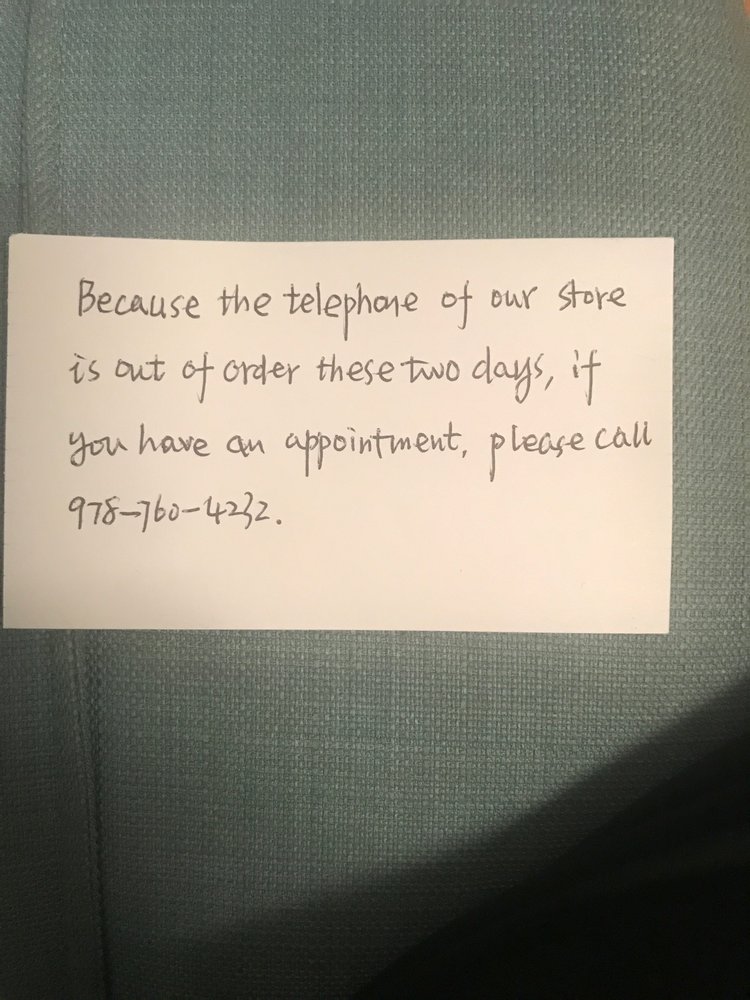 Because the telephone of our store
is out of order these two days, if
you have an appointment, please call
978-760-4232.